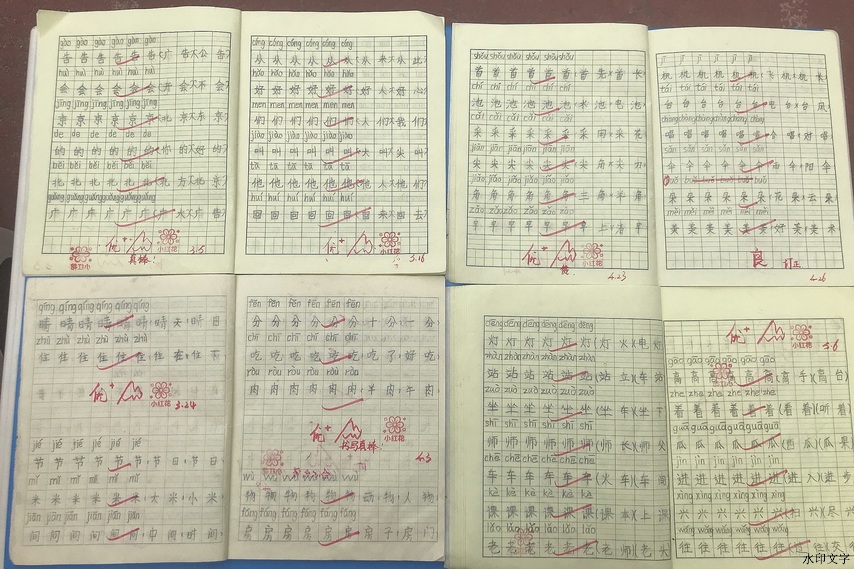 gào gào gào gào gào gào
告 告 告 告 告 告 广 告 公 告
huì huì huì huì huì huì
会 会 会 会 会 会 开 会 不 会
jīng jīng jīng jīng jīng jīng
京 京 京 京 京 京 北 京 东 京
de de de de de de
的 的 的 的 的 的 你 的 好 的
běi běi běi běi běi běi
北 北 北 北 北 北 北 方 北 京
guǎng guǎng guǎng guǎng guǎng guǎng
广 广 广 广 广 广 广 告
优+ 小红花 3.5
真棒!
cóng cóng cóng cóng cóng cóng
从 从 从 从 从 从 从 来 从 此
hǎo hǎo hǎo hǎo hǎo hǎo
好 好 好 好 好 好 大 好
men men men men men men
们 们 们 们 们 们 人 们 我 们
jiào jiào jiào jiào jiào jiào
叫 叫 叫 叫 叫 叫 大 叫 尖 叫
tā tā tā tā tā tā
他 他 他 他 他 他 他 人 他 们
huí huí huí huí huí huí
回 回 回 回 回 回 回 来 回 去
优+ 小红花 3.16
shǒu shǒu shǒu shǒu shǒu shǒu
首 首 首 首 首 首 首 先 首 长
chí chí chí chí chí chí
池 池 池 池 池 池 水 池 电 池
cǎi cǎi cǎi cǎi cǎi cǎi
采 采 采 采 采 采 采 用 采 花
jiān jiān jiān jiān jiān jiān
尖 尖 尖 尖 尖 尖 尖 角 尖 刀
jiǎo jiǎo jiǎo jiǎo jiǎo jiǎo
角 角 角 角 角 角 三 角 半 角
zǎo zǎo zǎo zǎo zǎo zǎo
早 早 早 早 早 早 早 上 早
优+ 小红花 4.23
jī jī jī jī jī jī
机 机 机 机 机 机 飞 机 机 长
tái tái tái tái tái tái
台 台 台 台 台 台 电 台 台 风
chàng chàng chàng chàng chàng chàng
唱 唱 唱 唱 唱 唱 合 唱 对 唱
sǎn sǎn sǎn sǎn sǎn sǎn
伞 伞 伞 伞 伞 伞 雨 伞 阳 伞
朵 朵 朵 朵 朵 朵 花 朵 云 朵
měi měi měi měi měi měi
美 美 美 美 美 美 美 好 美
良 订正 4.26
qíng qíng qíng qíng qíng qíng
晴 晴 晴 晴 晴 晴 晴 天 晴 日
zhù zhù zhù zhù zhù zhù
住 住 住 住 住 住 住 住 下
优+ 小红花 3.24
jié jié jié jié jié jié
节 节 节 节 节 节 节 日 节
mǐ mǐ mǐ mǐ mǐ mǐ
米 米 米 米 米 米 大 米 小 米
jiān jiān jiān jiān jiān jiān
间 间 间 间 间 间 中 间 时 间
fēn fēn fēn fēn fēn fēn
分 分 分 分 分 分 十 分 一 分
chī chī chī chī chī chī
吃 吃 吃 吃 吃 吃 吃 了 好 吃
ròu ròu ròu ròu ròu ròu
肉 肉 肉 肉 肉 肉 羊 肉 牛 肉
优+ 小红花
书写真棒! 4.3
wù wù wù wù wù wù
物 物 物 物 物 物 动 物 人 物
fáng fáng fáng fáng fáng fáng
房 房 房 房 房 房 房 子 房 门
dēng dēng dēng dēng dēng dēng
灯 灯 灯 灯 灯 灯 (灯 火)(电 灯
zhàn zhàn zhàn zhàn zhàn zhàn
站 站 站 站 站 站 (站 立)(车 站
zuò zuò zuò zuò zuò zuò
坐 坐 坐 坐 坐 坐 (坐 车)(坐 下
shī shī shī shī shī shī
师 师 师 师 师 师 (师 长)(师
chē chē chē chē chē chē
车 车 车 车 车 车 (火 车)(车
kè kè kè kè kè kè
课 课 课 课 课 课 (课 本)(上 课
lǎo lǎo lǎo lǎo lǎo lǎo
老 老 老 老 老 老 (老 师)(老 头
优+ 小红花 5.6
gāo gāo gāo gāo gāo gāo
高 高 高 高 高 高 (高 手)(高 台)
zhe zhe zhe zhe zhe zhe
着 着 着 着 着 着 (看 着)(听 着
guā guā guā guā guā guā
瓜 瓜 瓜 瓜 瓜 瓜 (西 瓜)(瓜 果
jìn jìn jìn jìn jìn jìn
进 进 进 进 进 进 (进 入)(进 步
xìng xìng xìng xìng xìng xìng
兴 兴 兴 兴 兴 兴
wǎng wǎng wǎng wǎng wǎng wǎng
往 往 往 往 往 往
水印文字